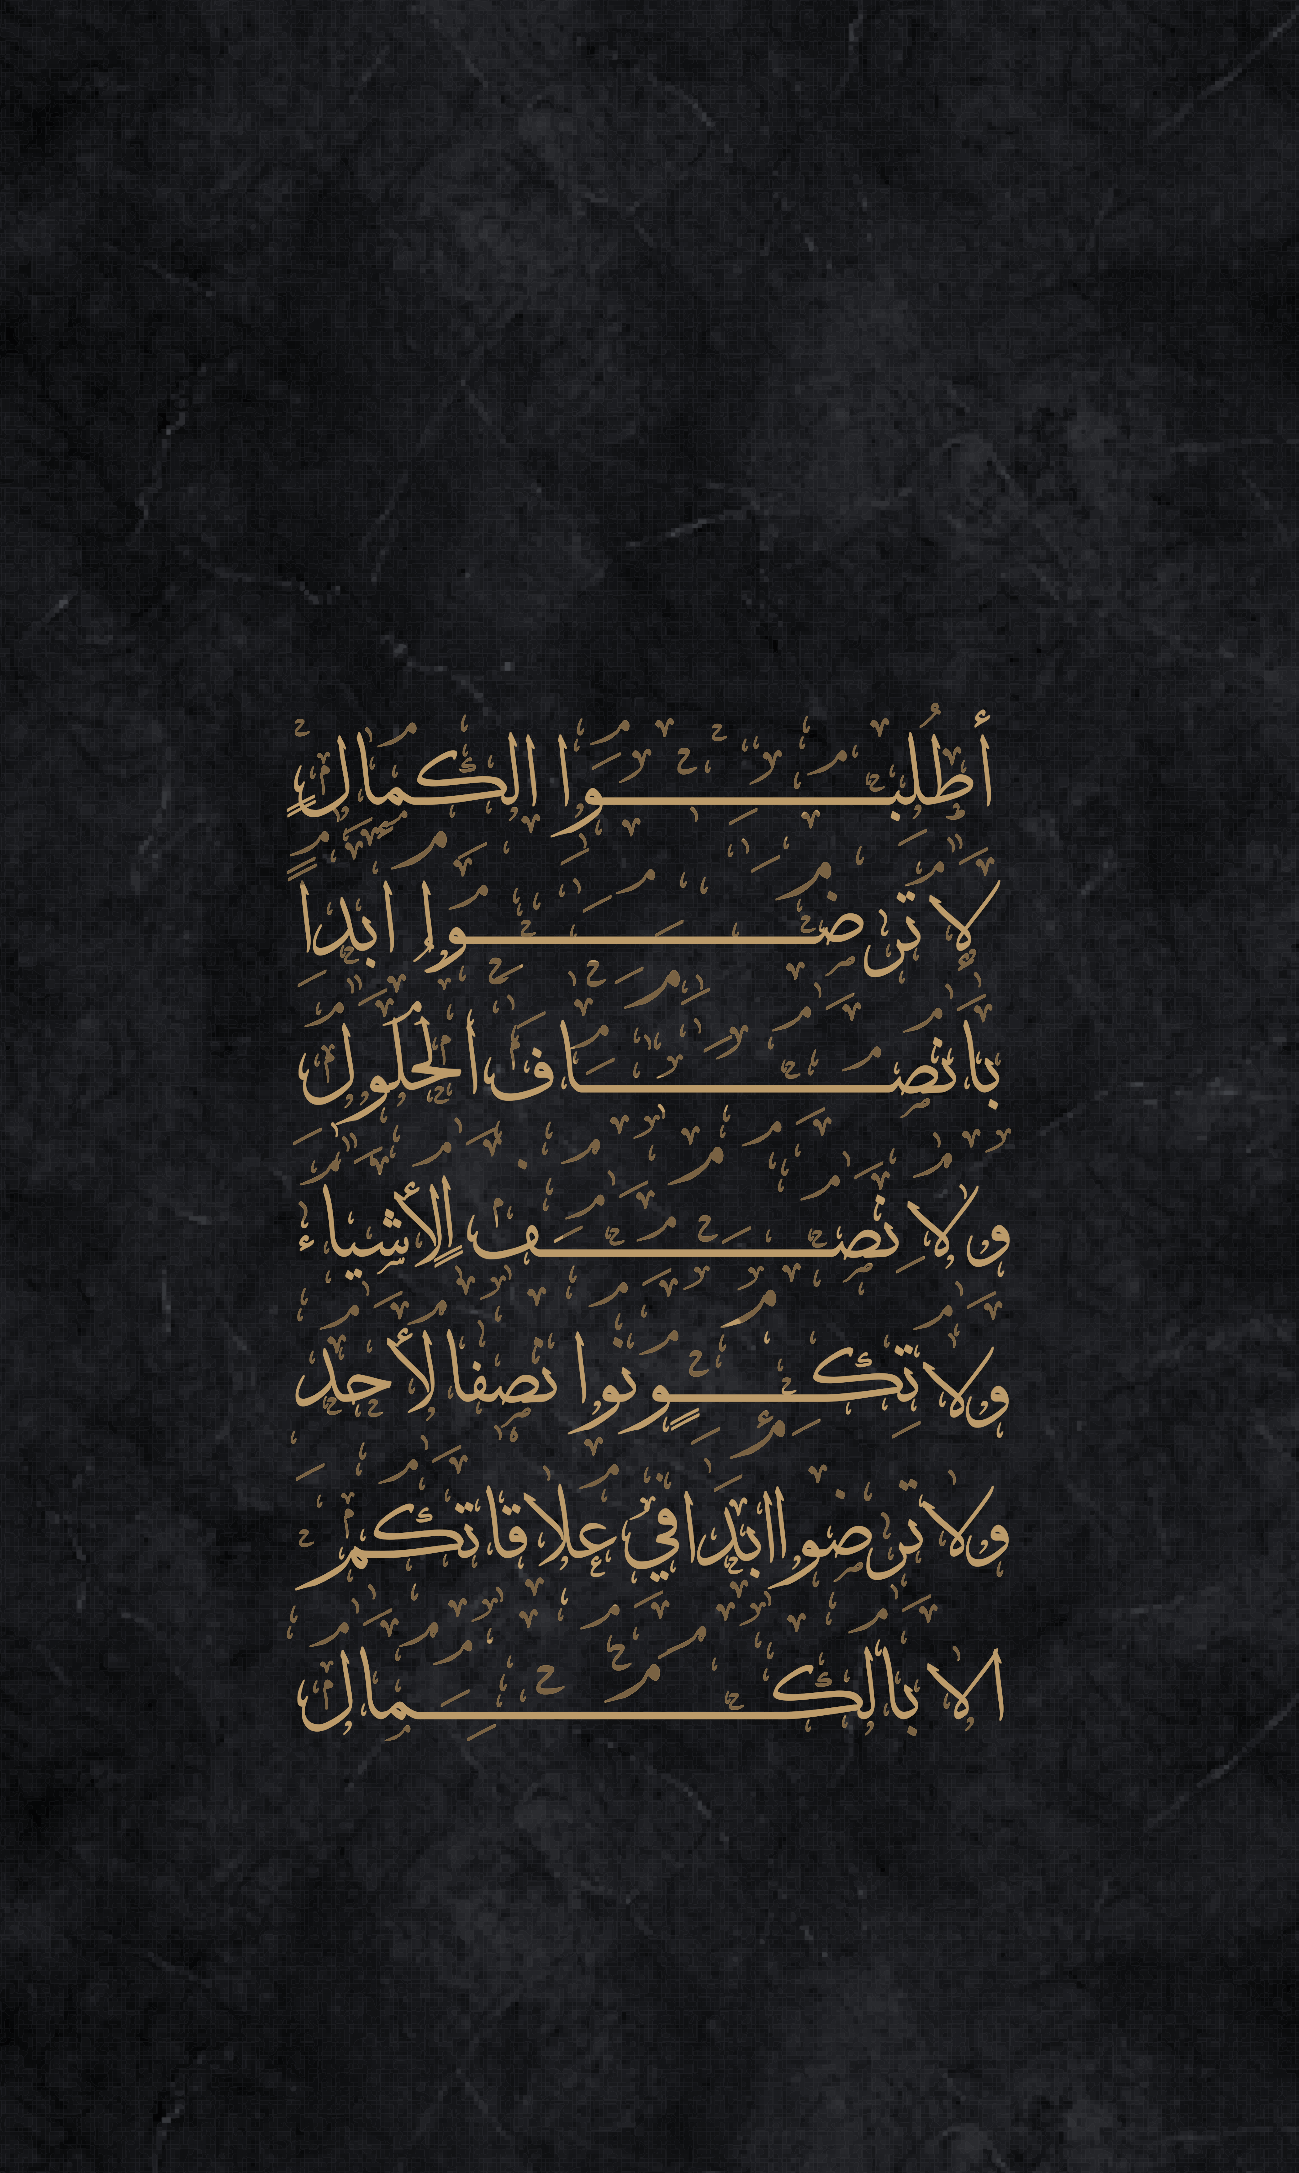 أطلبوا الكمال
لا ترضوا ابداً
بانصاف الحلول
ولا نصف الأشياء
ولا تكونوا نصفا لأحد
ولا ترضوا ابدا في علاقاتكم
الا بالكمال